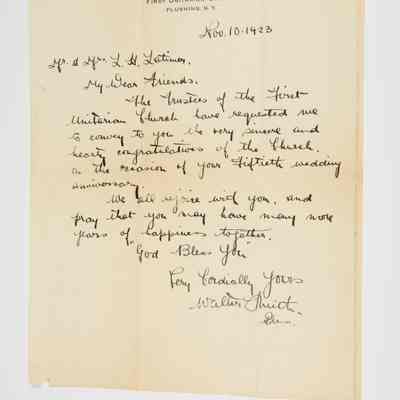 First Unitarian
Flushing, N.Y.
Nov. 10 - 1923
Mr. & Mrs. L. H. Latimer.
My Dear Friends.
The Trustees of the First
Unitarian Church have requested me
to convey to you the very sincere and
hearty congratulations of the Church.
on the occasion of your Fiftieth wedding
anniversary.
We all rejoice with you, and
pray that you may have many more
years of happiness together.
"God Bless You"
Very Cordially Yours
Walter Smith.